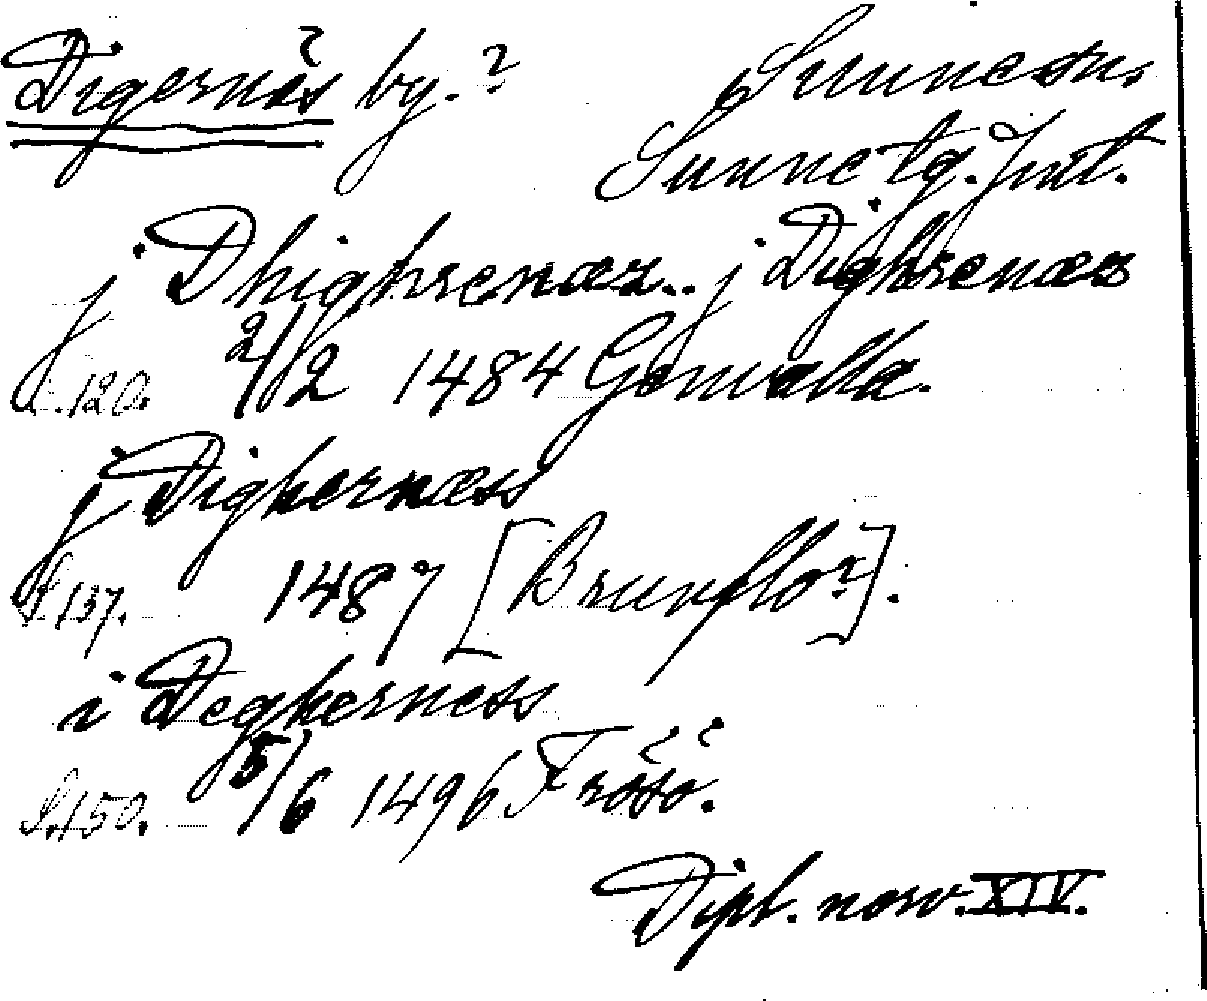 Digernäs by.? Sunne sn.
Sunne tg. Jmt.
j Dhighrenæs.. j Dighrenæs
S. 120. 2/2 1484 Genvalla.
j Digherness
S. 137. 1487 [Brunflo?].
i Deghernæss
S. 150. 5/6 1496 Frösö.
Dipl. norv. XIV.